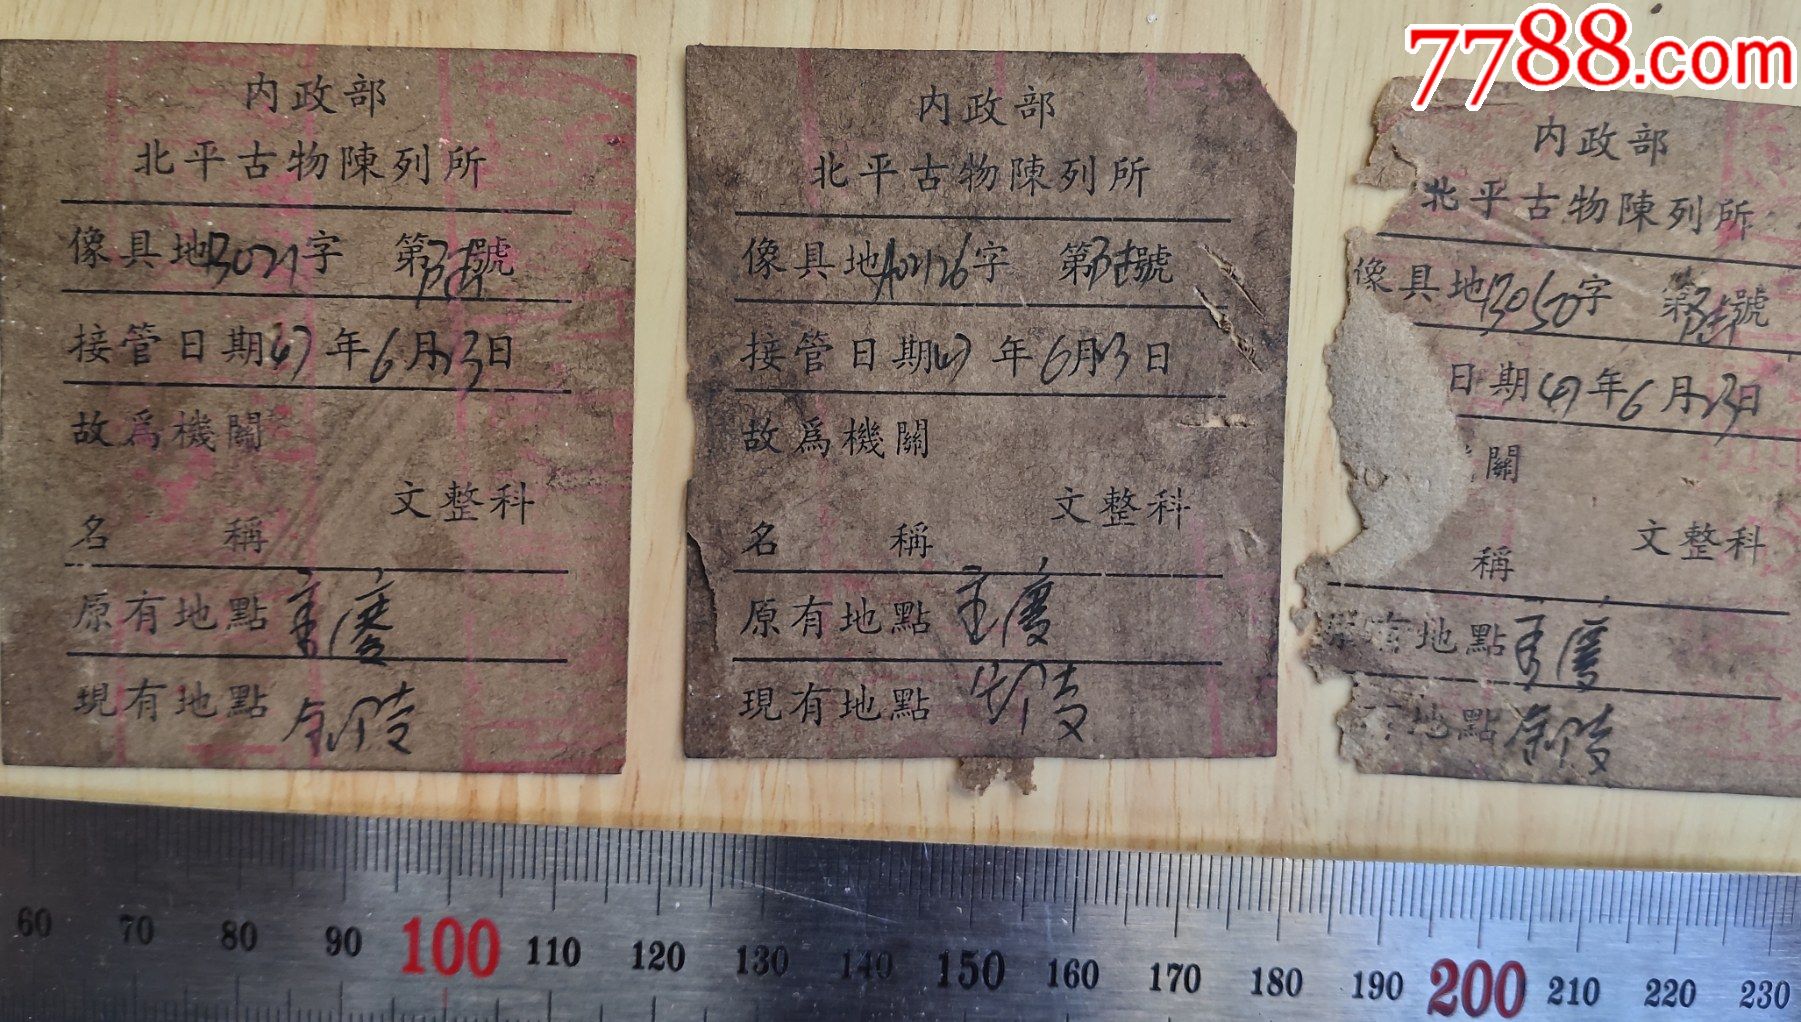 7788.com
内政部
北平古物陳列所
像具地B021字 第 號
接管日期 年6月13日
故爲機關
文整科
名 稱
原有地點 重慶
現有地點 金陵
内政部
北平古物陳列所
像具地A02126字 第 號
接管日期 年6月13日
故爲機關
文整科
名 稱
原有地點 重慶
現有地點 金陵
内政部
北平古物陳列所
像具地B050字 第 號
日期 年6月13日
關
文整科
稱
有地點 重慶
有地點 金陵
60 70 80 90 100 110 120 130 140 150 160 170 180 190 200 210 220 230